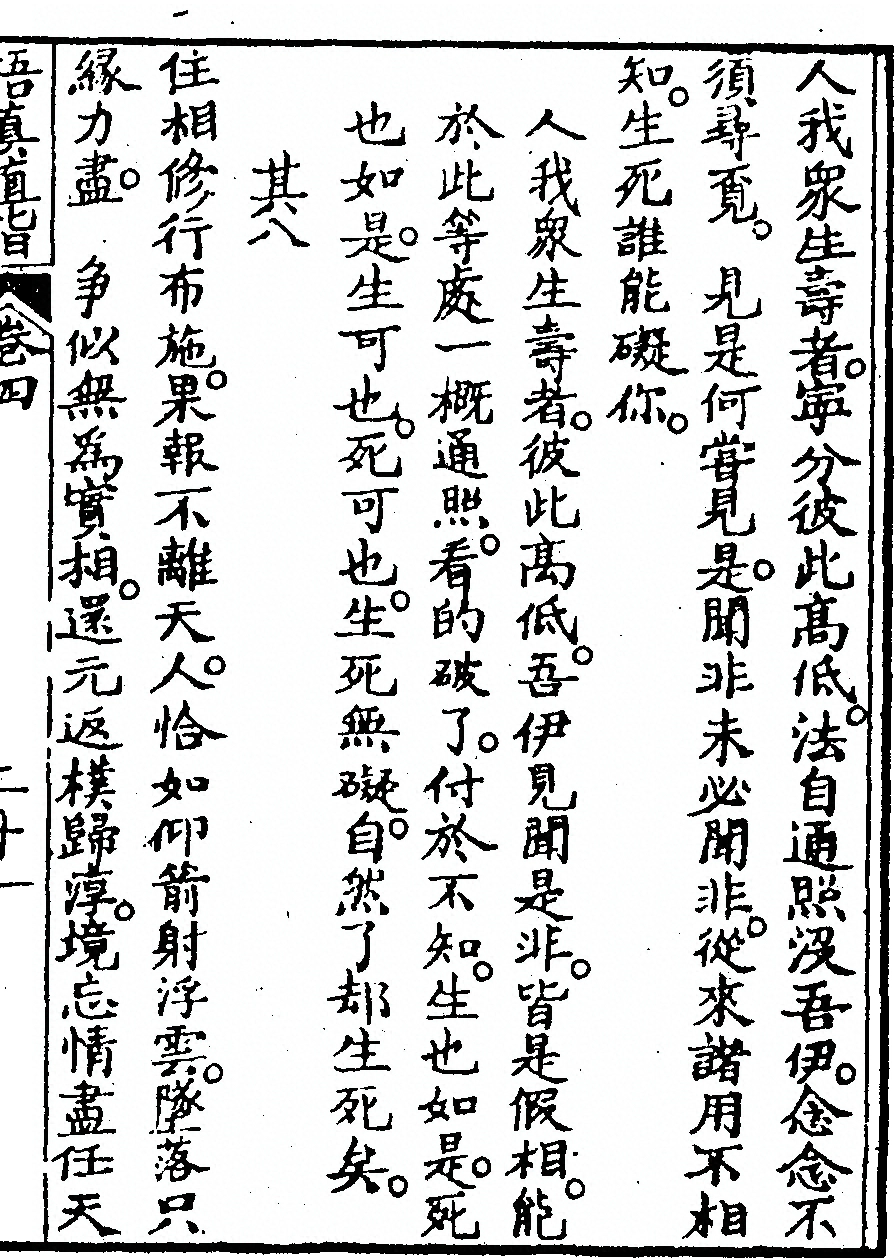 人我衆生壽者。寧分彼此高低。法自通照沒吾伊。念念不
須尋覔。見是何嘗見是。聞非未必聞非。從來諸用不相
知。生死誰能礙你。
人我衆生壽者。彼此高低。吾伊見聞是非。皆是假相。能
於此等處一概通照。看的破了。付於不知。生也如是。死
也如是。生可也。死可也。生死無礙。自然了却生死矣。
其八
住相修行布施。果報不離天人。恰如仰箭射浮雲。墜落只
緣力盡。争似無為實相。還元返樸歸淳。境忘情盡任天
悟真直指 卷四 二十一